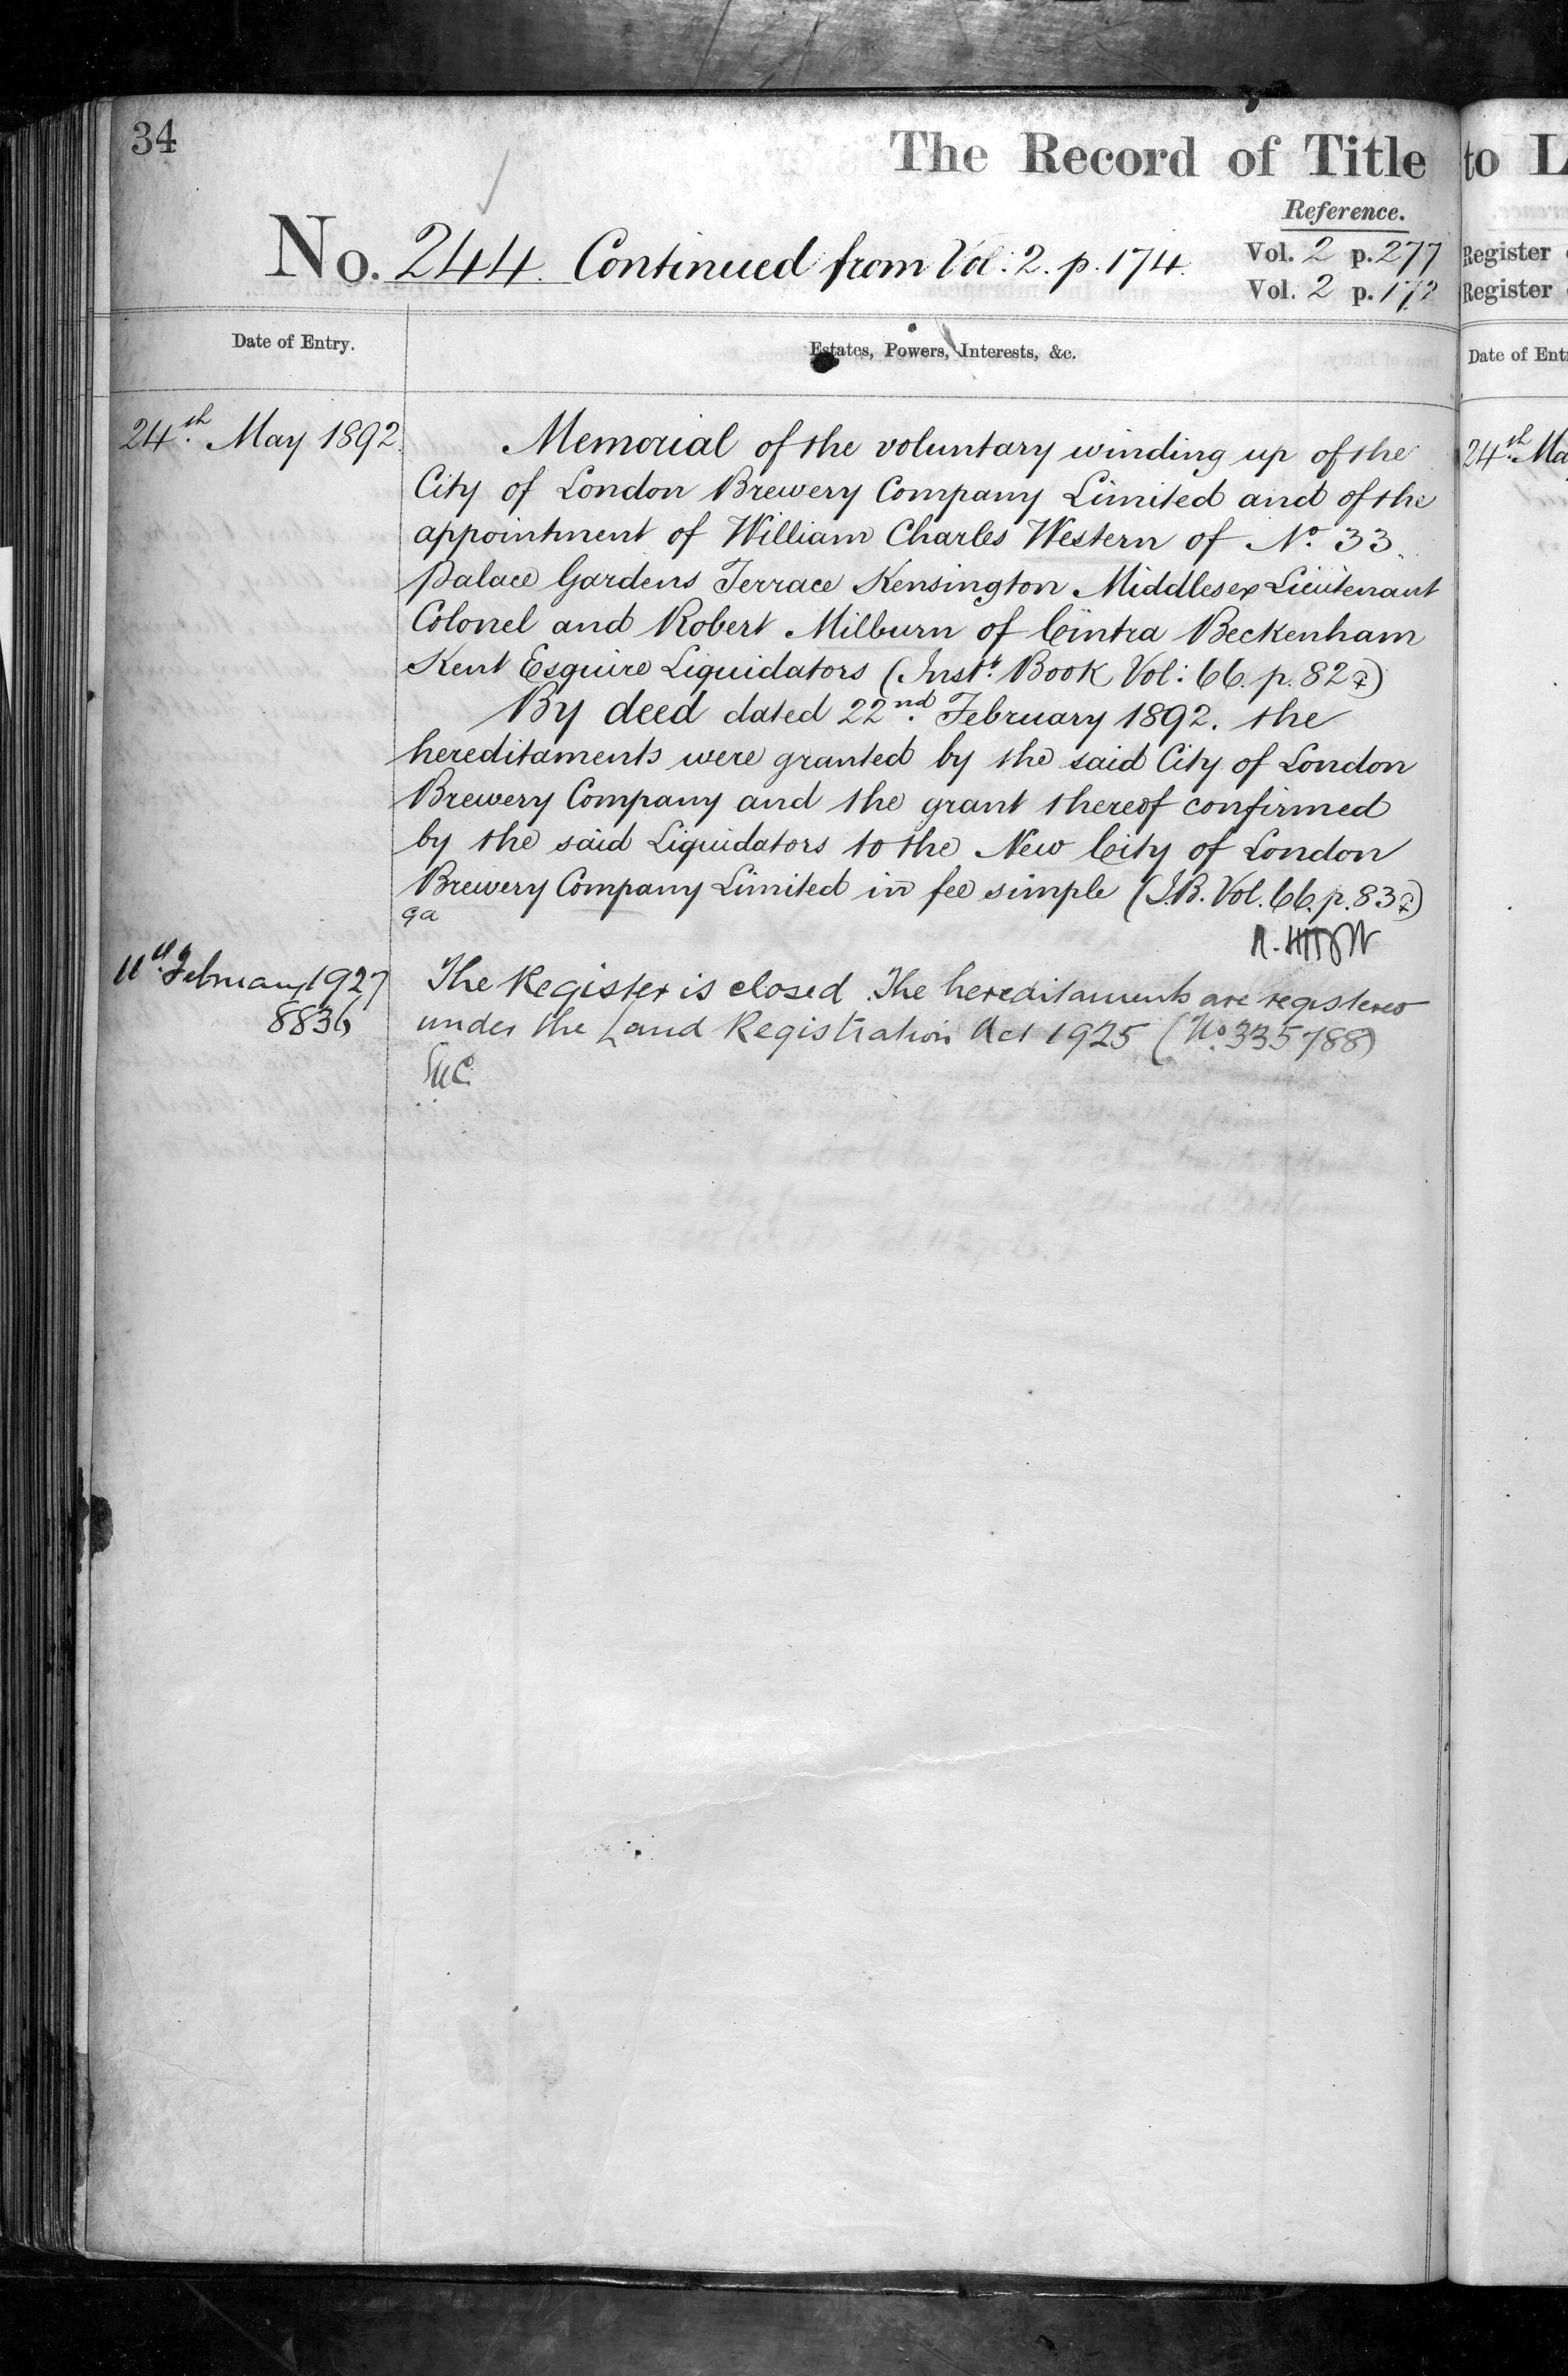 34
The Record of Title
Reference.
No. 244. Continued from Vol: 2. p. 174.
Vol. 2 p. 277
Vol. 2 p. 172
Date of Entry.
Estates, Powers, Interests, &c.
24th May 1892.
Memorial of the voluntary winding up of the
City of London Brewery Company Limited and of the
appointment of William Charles Western of No. 33.
Palace Gardens Terrace Kensington Middlesex Lieutenant
Colonel and Robert Milburn of Cintra Beckenham
Kent Esquire Liquidators (Instt. Book Vol: 66. p. 82)
By deed dated 22nd February 1892. the
hereditaments were granted by the said City of London
Brewery Company and the grant thereof confirmed
by the said Liquidators to the New City of London
Brewery Company Limited in fee simple (I.B. Vol. 66. p. 83)
11th February 1927
8836
The Register is closed. The hereditaments are registered
under the Land Registration Act 1925 (No. 335788)
to L
Register
Register
Date of Ent
24th Ma